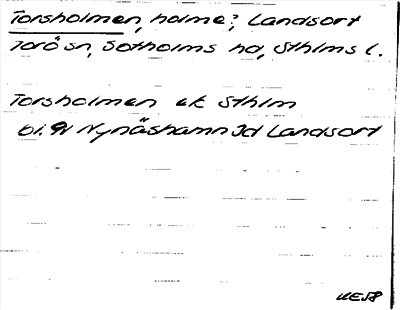 Torsholmen, holme?, Landsort
Torö sn, Sotholms hd, Sthlms l.
Torsholmen ek Sthlm
bl. 9I Nynäshamn Jd Landsort